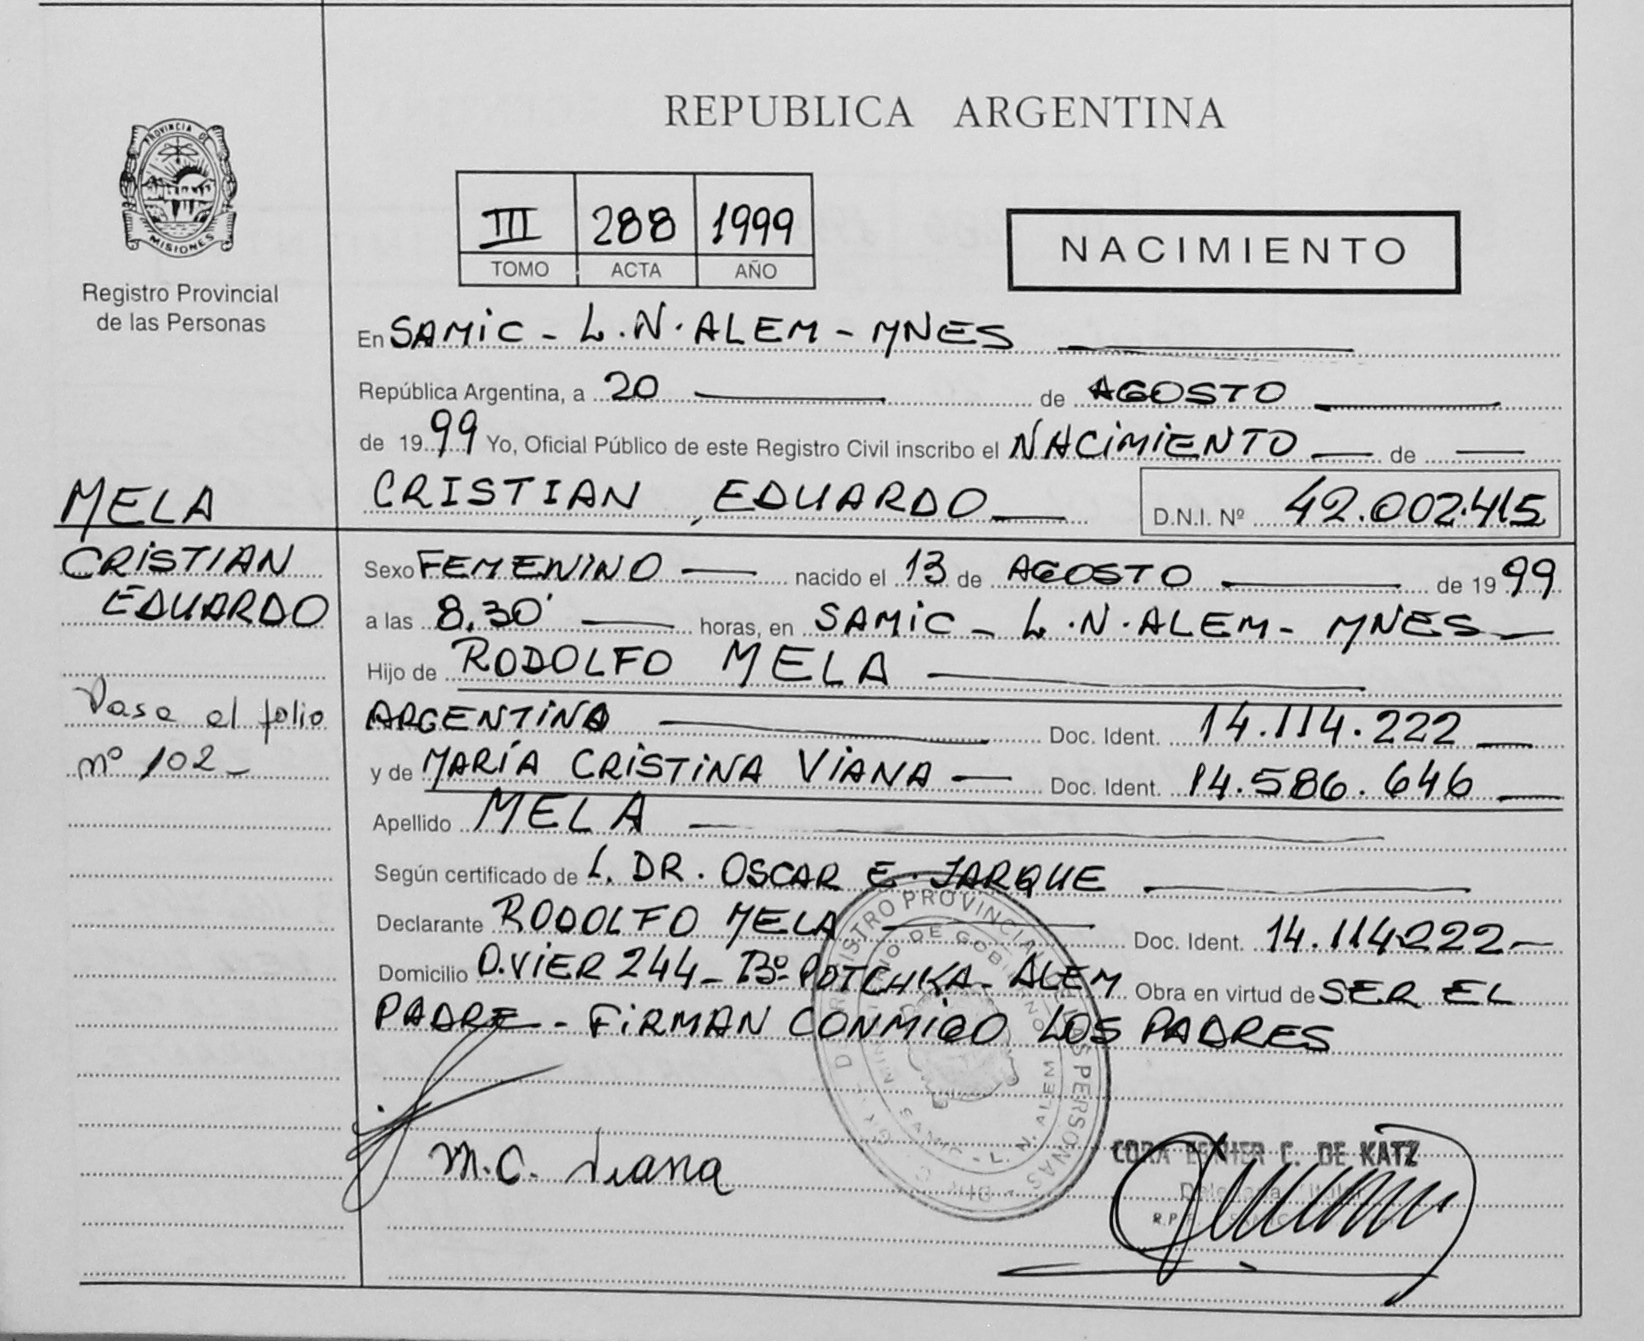 REPUBLICA ARGENTINA
PROVINCIA DE
MISIONES
Registro Provincial
de las Personas
III 288 1999
TOMO ACTA AÑO
NACIMIENTO
En SAMIC - L.N. ALEM - MNES
República Argentina, a 20 de AGOSTO
de 1999 Yo, Oficial Público de este Registro Civil inscribo el NACIMIENTO de
CRISTIAN, EDUARDO D.N.I. Nº 42.002.415
MELA
CRISTIAN
EDUARDO
Pase al folio
nº 102
Sexo FEMENINO nacido el 13 de AGOSTO de 1999
a las 8,30' horas, en SAMIC - L.N. ALEM - MNES
Hijo de RODOLFO MELA
ARGENTINO Doc. Ident. 14.114.222
y de MARÍA CRISTINA VIANA Doc. Ident. 14.586.646
Apellido MELA
Según certificado de L. DR. OSCAR E. JARQUE
Declarante RODOLFO MELA Doc. Ident. 14.114222
Domicilio O.VIER 244 - Bº POTCHKA - ALEM Obra en virtud de SER EL
PADRE - FIRMAN CONMIGO LOS PADRES
M.C. Viana
CORA ESTHER C. DE KATZ